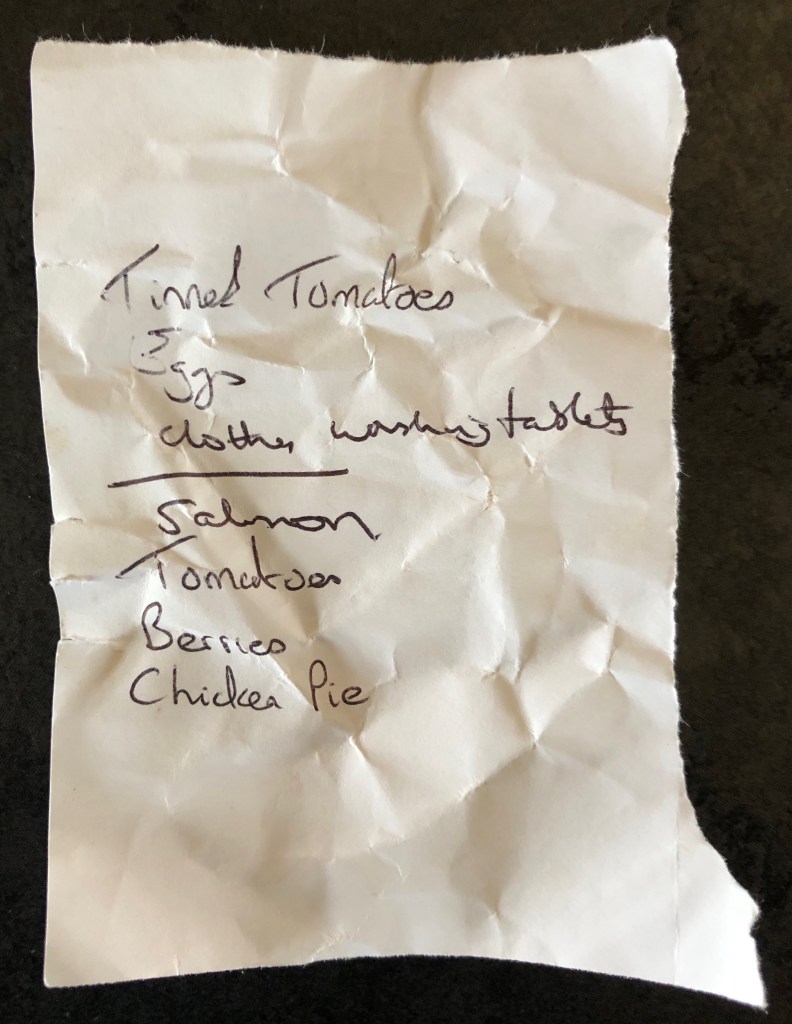 Tinned Tomatoes
Eggs
clothes washing tablets
Salmon
Tomatoes
Berries
Chicken Pie